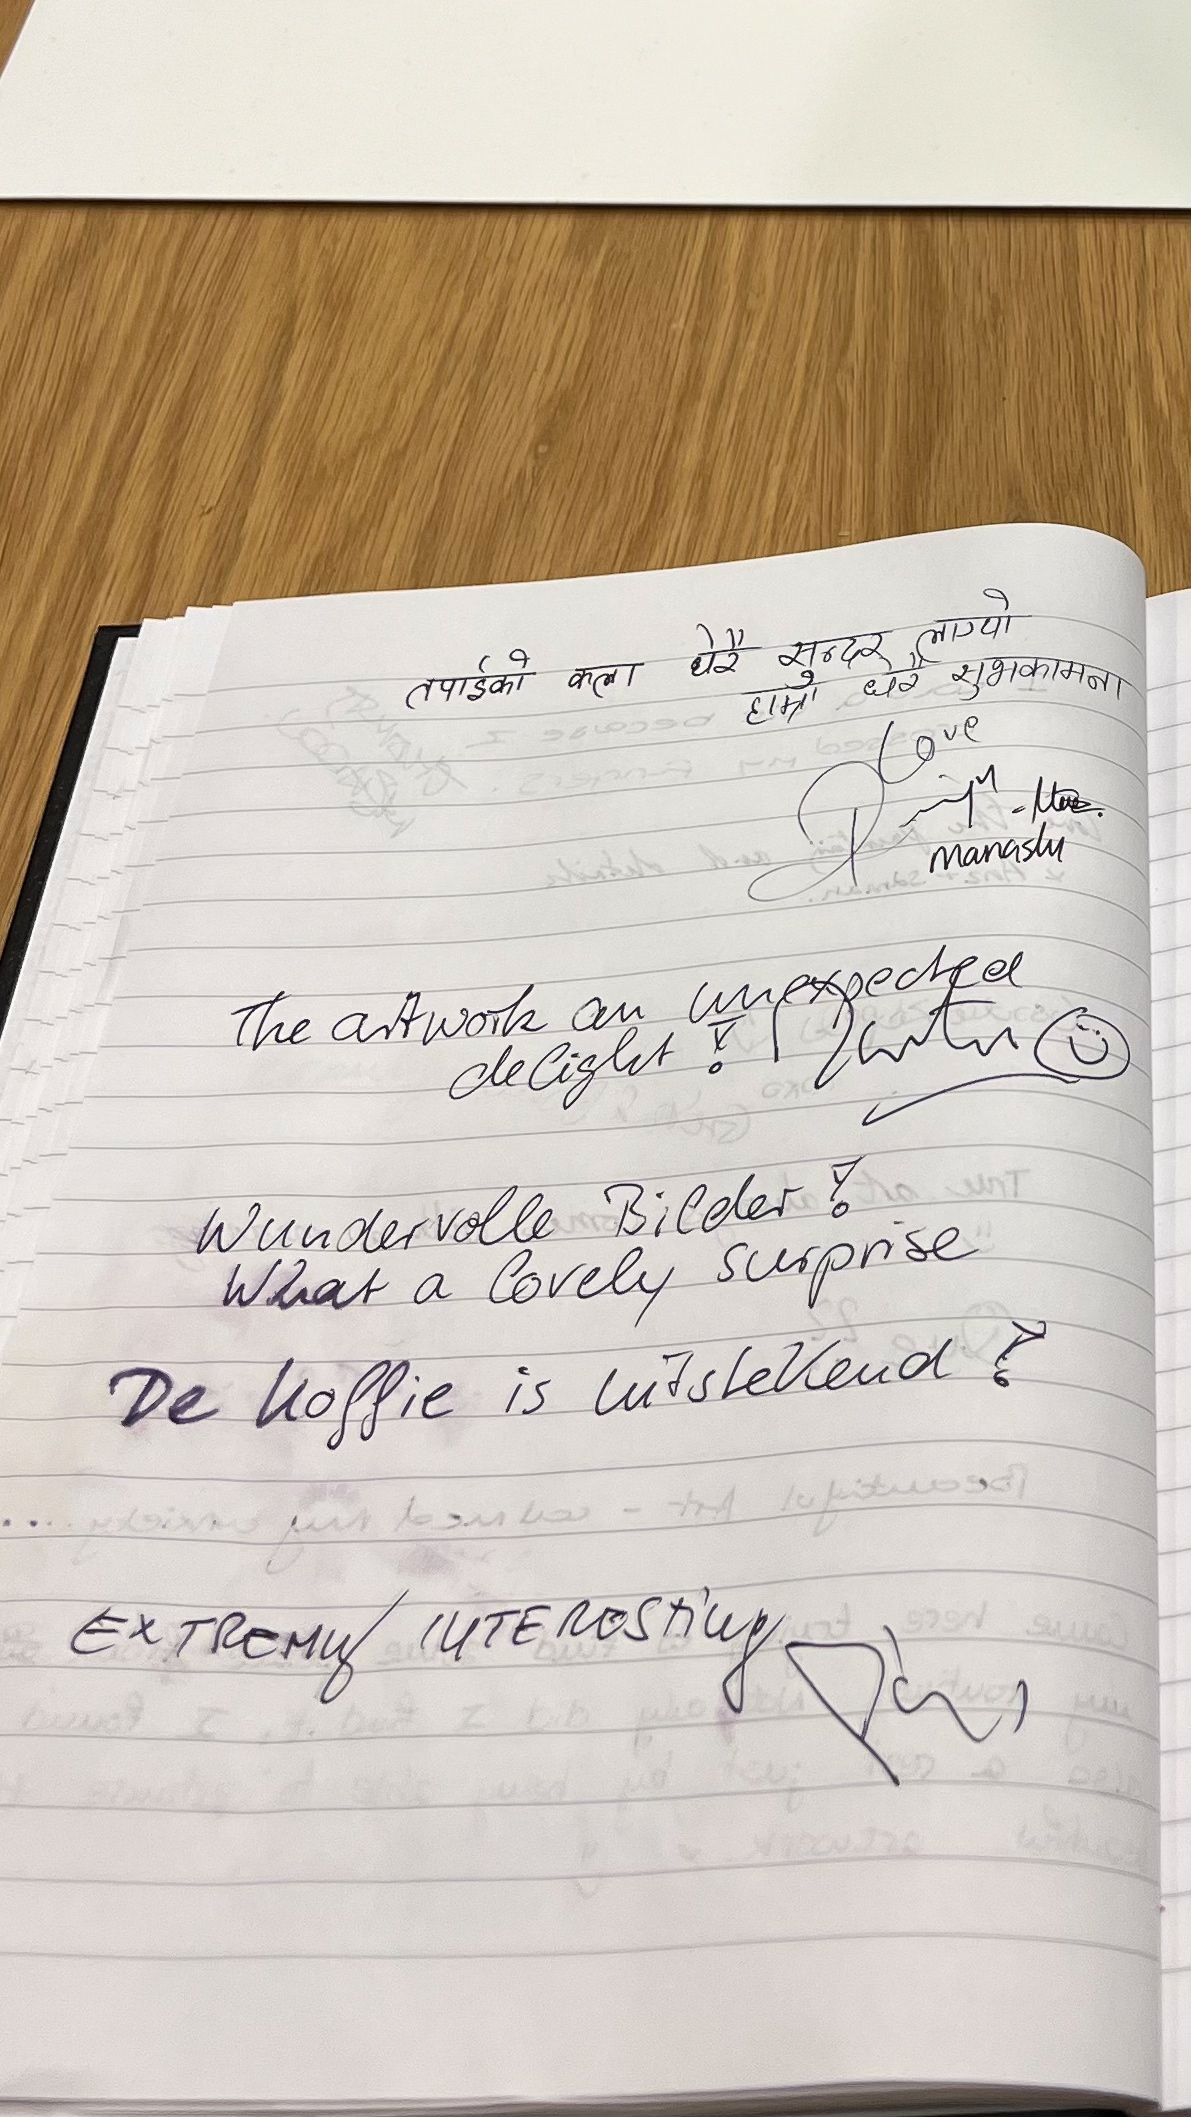 तपाईको कला धेरै सुन्दर लाग्यो
हाम्रो धेरै शुभकामना
Love
manaslu
The artwork an unexpected
delight!
Wundervolle Bilder!
What a lovely surprise
De koffie is uitstekend!
EXTREMLY INTERESTING